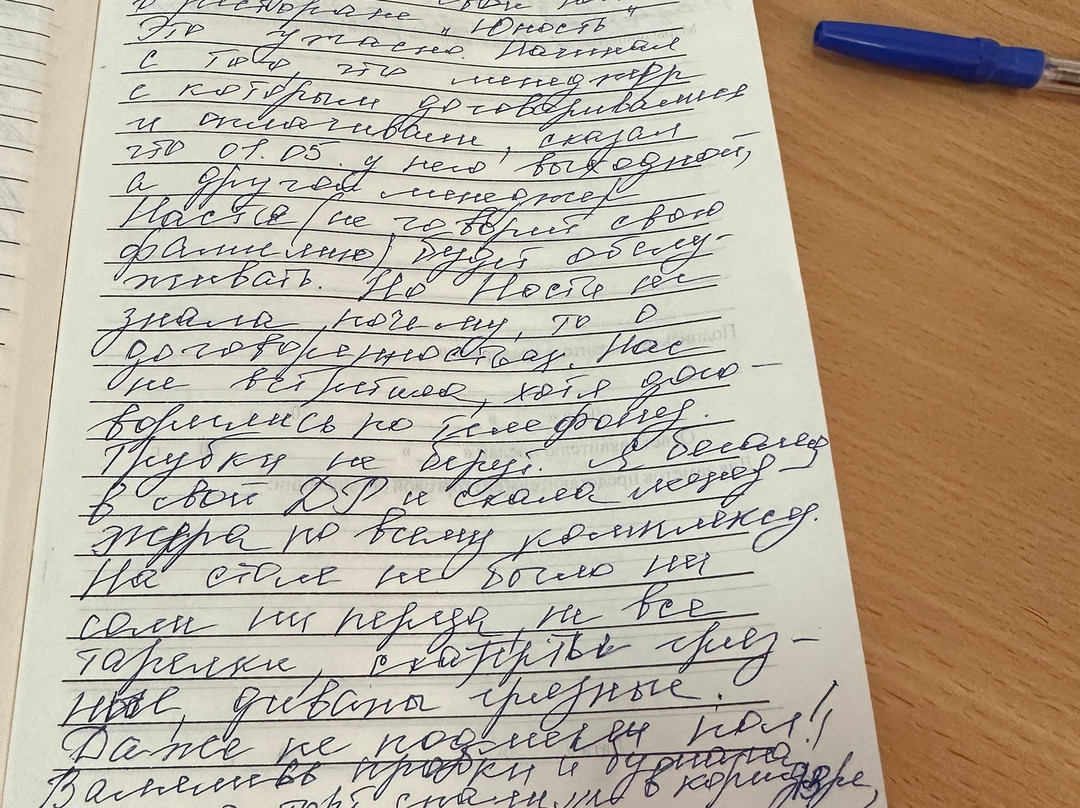 в ресторане свой
"Юность"
Это ужасно. Начиная
с того, что менеджер
с которым договаривались
и оплачивали, сказал
что 01.05. у него выходной,
а другой менеджер
Настя (не говорит свою
фамилию) будет обслу-
живать. Но Настя не
знала почему, то о
договоренностях. Нас
не встретила, хотя дого-
ворились по телефону.
Трубки не берут. Я бегала
в свой ДР и искала менед-
жера по всему комплексу.
На столе не было ни
соли ни перца, не все
тарелки, скатерть гряз-
ные, диваны грязные.
Даже не подметен пол!!
Валялись пробки и бумага
в коридоре,
торт